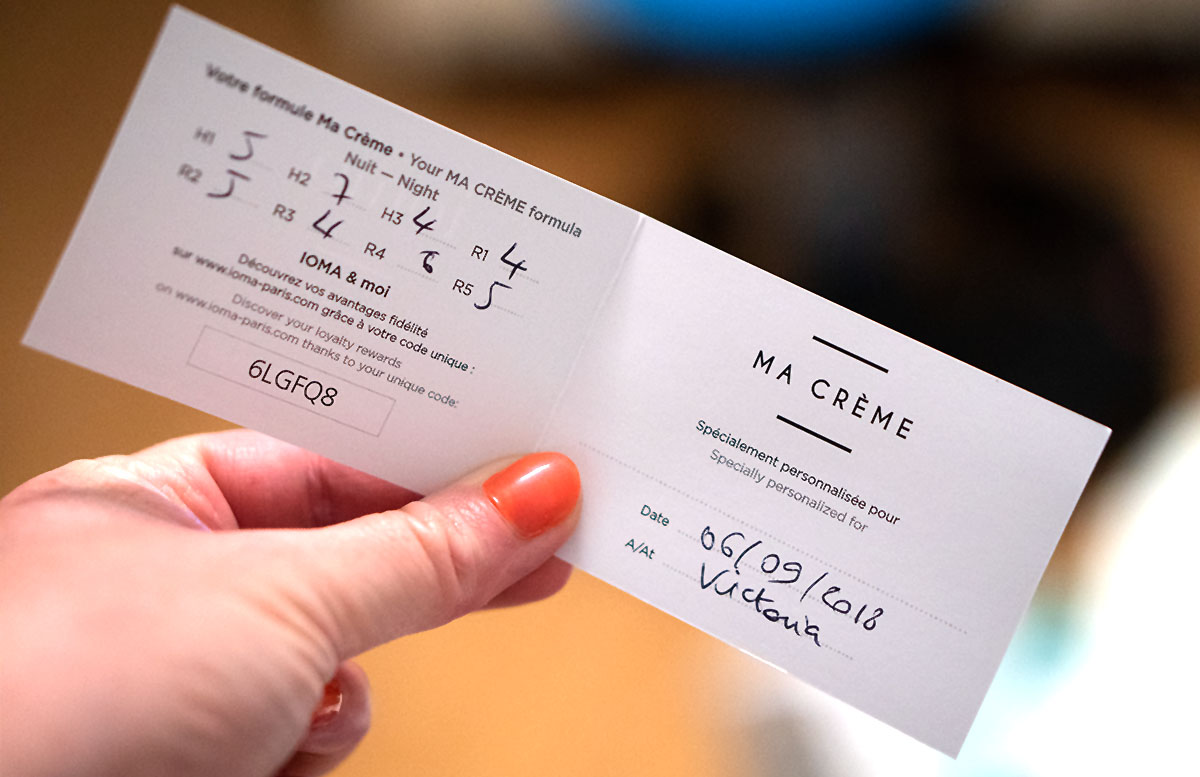 Votre formule Ma Crème • Your MA CRÈME formula
Nuit — Night
H1 5 H2 7 H3 4 R1 4
R2 5 R3 4 R4 6 R5 5
IOMA & moi
Découvrez vos avantages fidélité
sur www.ioma-paris.com grâce à votre code unique :
Discover your loyalty rewards
on www.ioma-paris.com thanks to your unique code:
6LGFQ8
MA CRÈME
Spécialement personnalisée pour
Specially personalized for
Date 06/09/2018
A/At Victoria